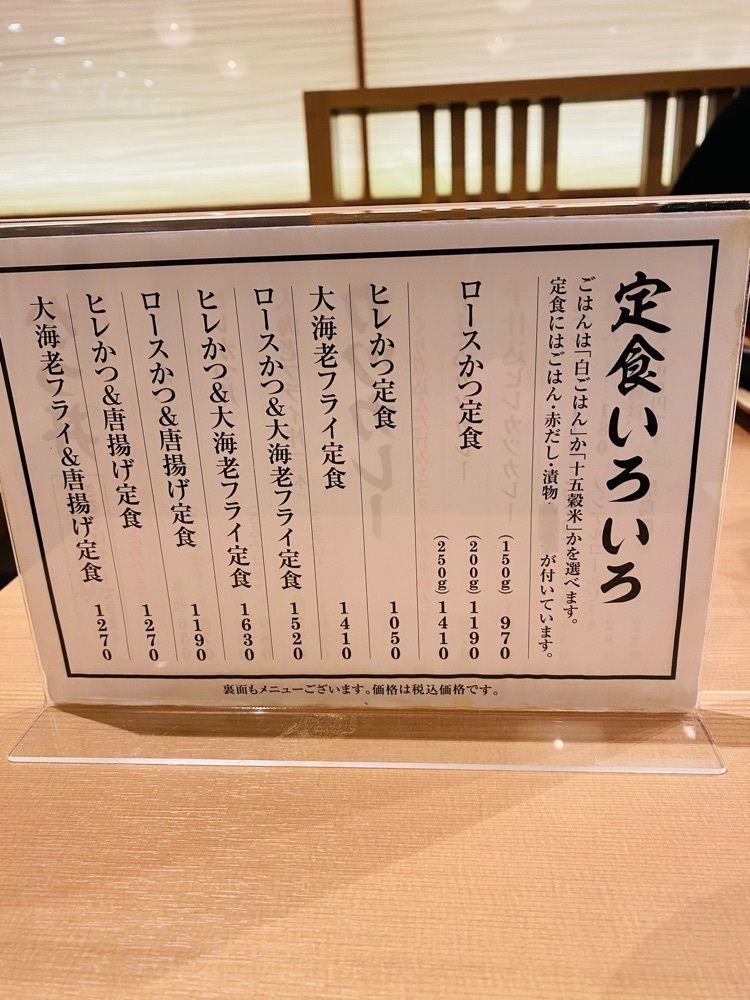 定食いろいろ
ごはんは「白ごはん」か「十五穀米」かを選べます。
定食にはごはん・赤だし・漬物 が付いています。
ロースかつ定食
(150g) 970
(200g) 1190
(250g) 1410
ヒレかつ定食 1050
大海老フライ定食 1410
ロースかつ&大海老フライ定食 1520
ヒレかつ&大海老フライ定食 1630
ロースかつ&唐揚げ定食 1190
ヒレかつ&唐揚げ定食 1270
大海老フライ&唐揚げ定食 1270
裏面もメニューございます。価格は税込価格です。